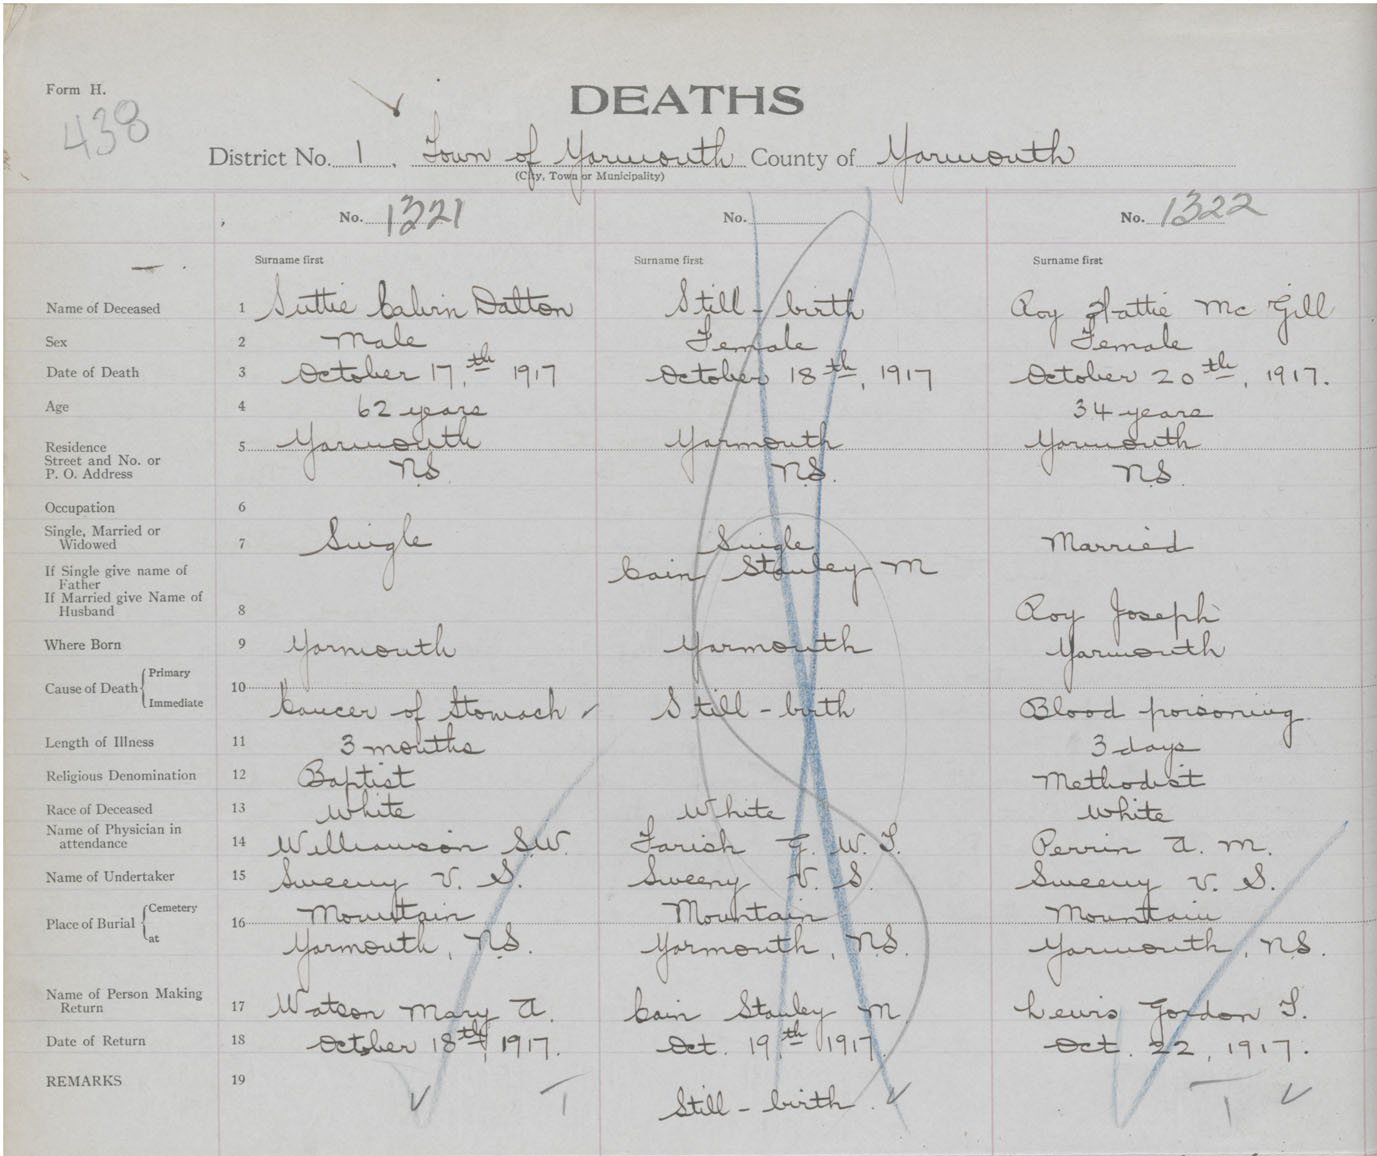 Form H.
438
DEATHS
District No. 1, Town of Yarmouth County of Yarmouth
(City, Town or Municipality)
No. 1321 No. No. 1322
Surname first Surname first Surname first
Name of Deceased 1 Suttie Calvin Dalton Still-birth Roy Hattie McGill
Sex 2 Male Female Female
Date of Death 3 October 17,th 1917 October 18th, 1917 October 20th, 1917.
Age 4 62 years 34 years
Residence Street and No. or P. O. Address 5 Yarmouth Yarmouth Yarmouth
N.S. N.S. N.S.
Occupation 6
Single, Married or Widowed 7 Single Single Married
If Single give name of Father Cain Stanley M
If Married give Name of Husband 8 Roy Joseph
Where Born 9 Yarmouth Yarmouth Yarmouth
Cause of Death Primary 10
Immediate Cancer of Stomach Still-birth Blood poisoning
Length of Illness 11 3 months 3 days
Religious Denomination 12 Baptist Methodist
Race of Deceased 13 White White White
Name of Physician in attendance 14 Williamson S.W. Farish G. W. T. Perrin A. M.
Name of Undertaker 15 Sweeny V. S. Sweeny V. S. Sweeny V. S.
Place of Burial Cemetery 16 Mountain Mountain Mountain
at Yarmouth, N.S. Yarmouth, N.S. Yarmouth, N.S.
Name of Person Making Return 17 Watson Mary A. Cain Stanley M. Lewis Gordon T.
Date of Return 18 October 18th, 1917. Oct. 19th 1917 Oct. 22, 1917.
REMARKS 19 Still-birth.